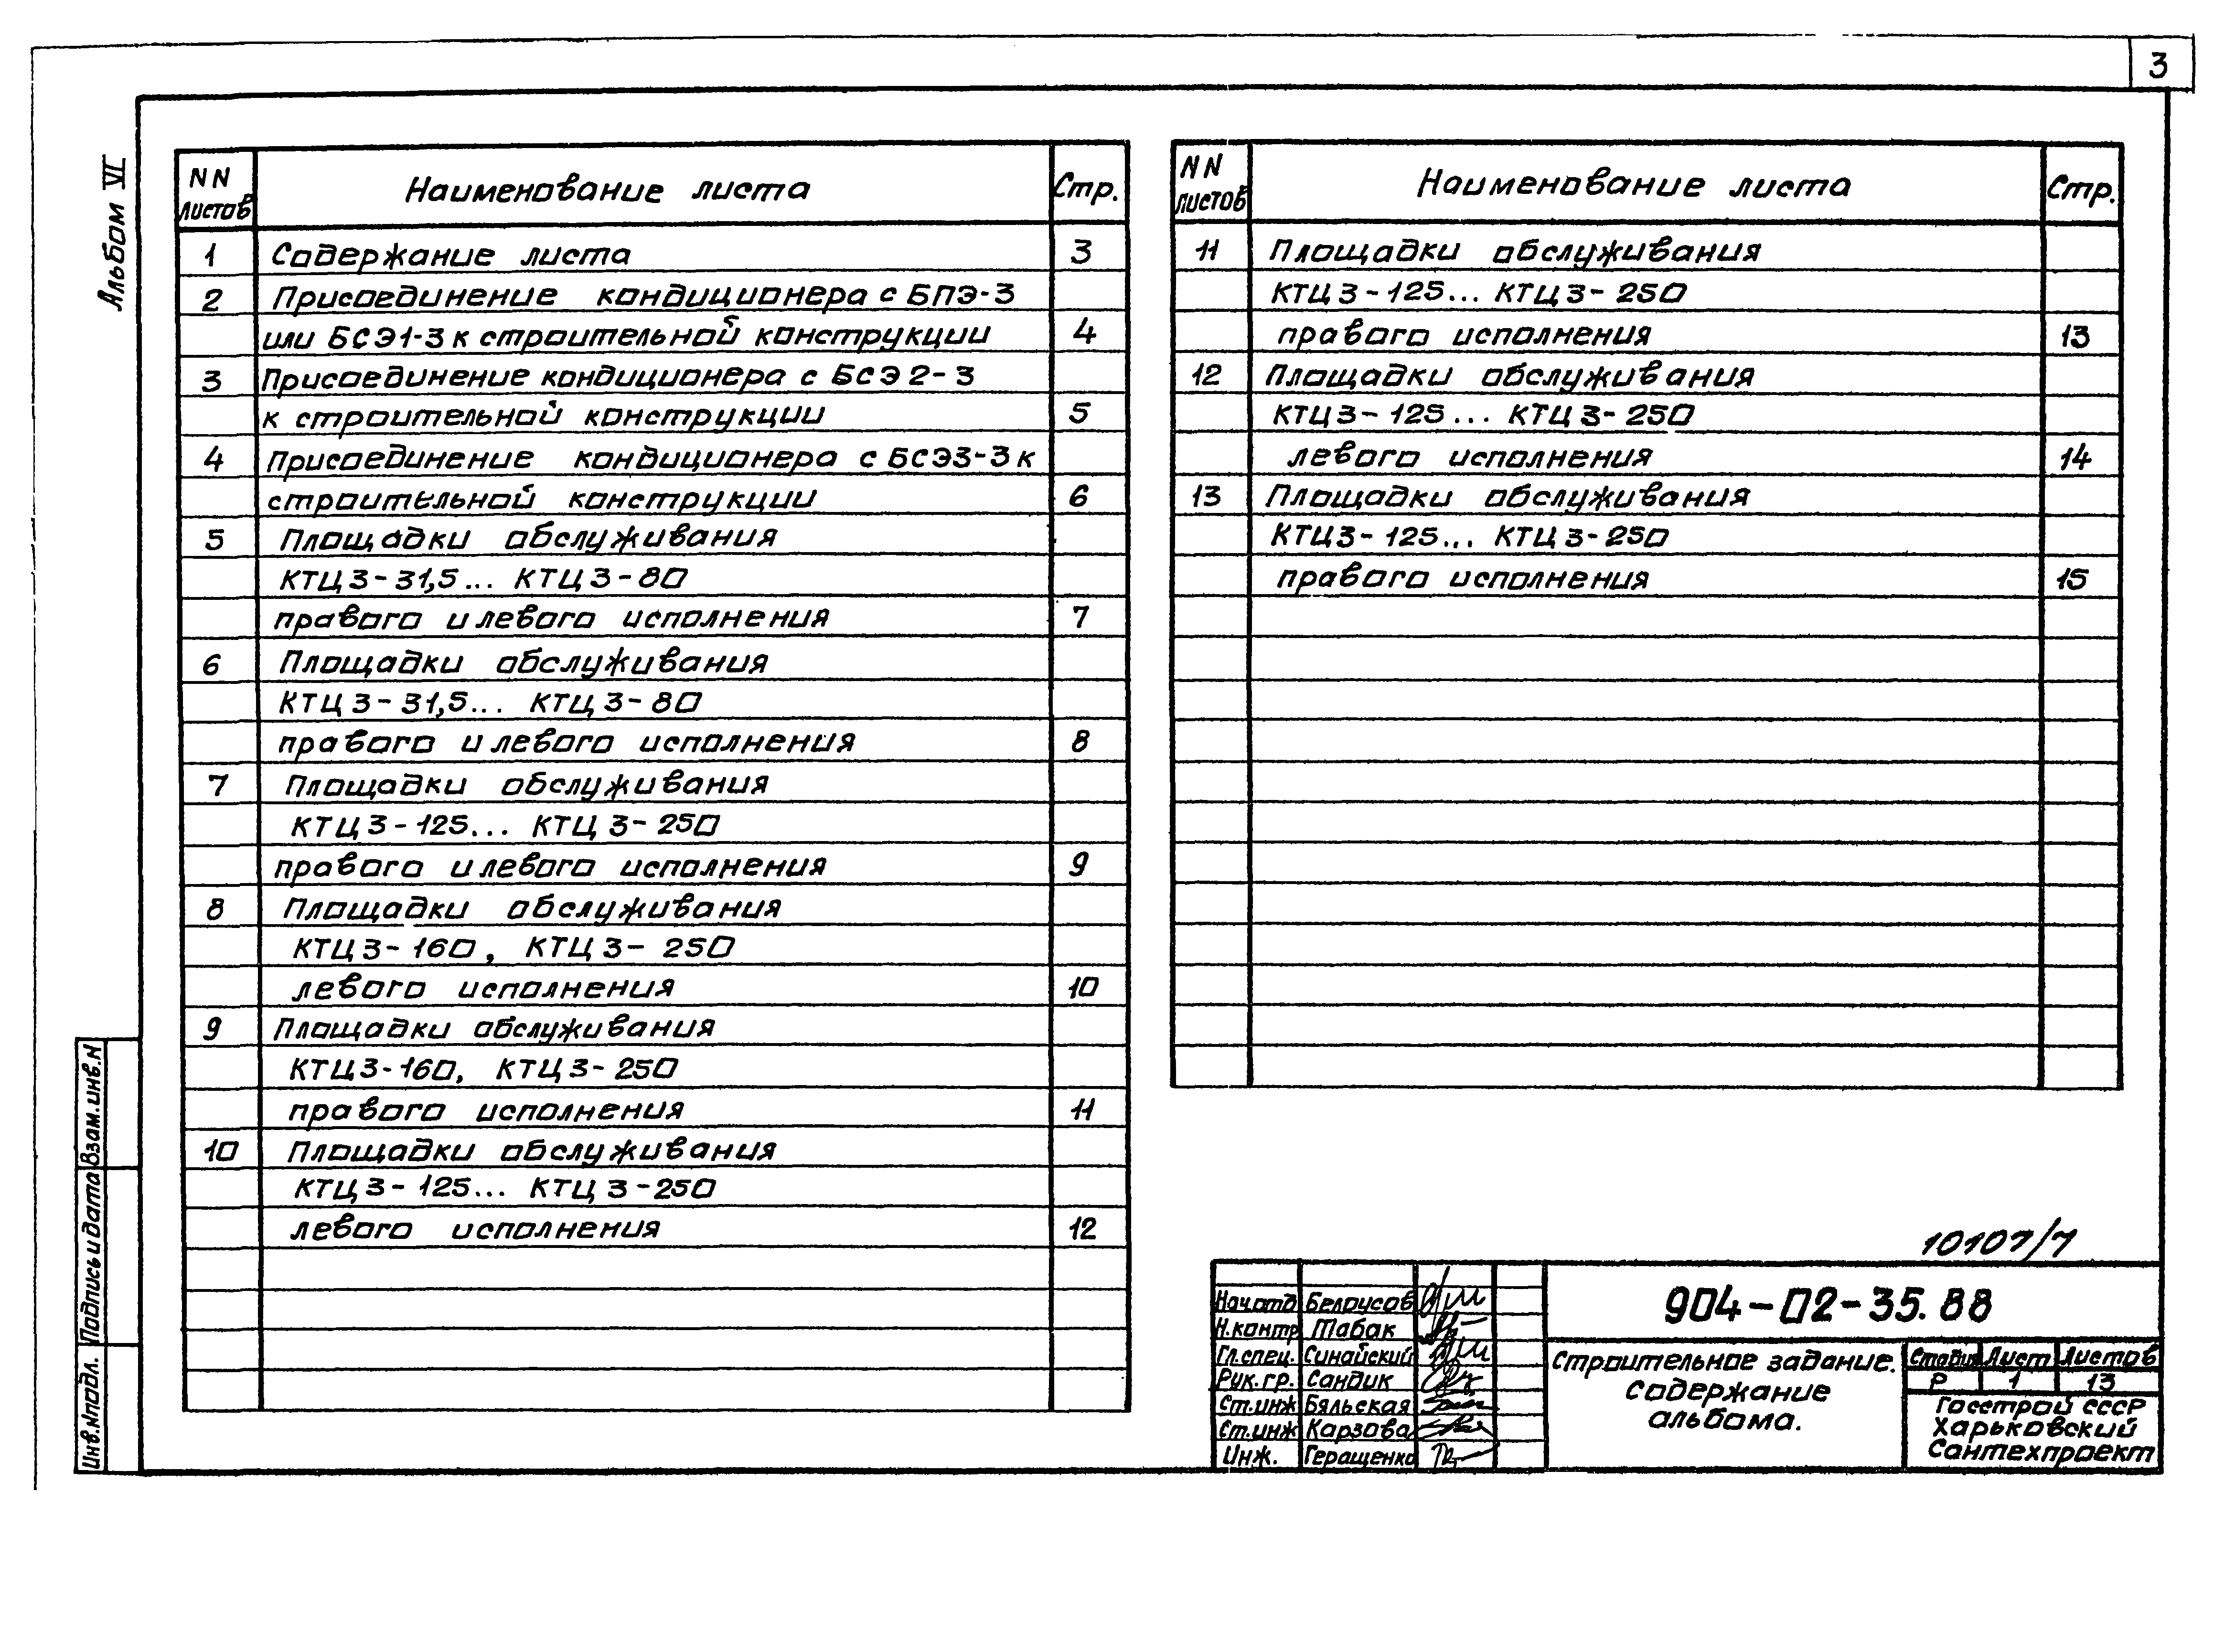 3
Альбом VI
NN листов Наименование листа Стр.
1 Содержание листа 3
2 Присоединение кондиционера с БПЭ-3
или БСЭ1-3 к строительной конструкции 4
3 Присоединение кондиционера с БСЭ2-3
к строительной конструкции 5
4 Присоединение кондиционера с БСЭ3-3 к
строительной конструкции 6
5 Площадки обслуживания
КТЦ3-31,5... КТЦ3-80
правого и левого исполнения 7
6 Площадки обслуживания
КТЦ3-31,5... КТЦ3-80
правого и левого исполнения 8
7 Площадки обслуживания
КТЦ3-125... КТЦ3-250
правого и левого исполнения 9
8 Площадки обслуживания
КТЦ3-160, КТЦ3-250
левого исполнения 10
9 Площадки обслуживания
КТЦ3-160, КТЦ3-250
правого исполнения 11
10 Площадки обслуживания
КТЦ3-125... КТЦ3-250
левого исполнения 12
NN листов Наименование листа Стр.
11 Площадки обслуживания
КТЦ3-125... КТЦ3-250
правого исполнения 13
12 Площадки обслуживания
КТЦ3-125... КТЦ3-250
левого исполнения 14
13 Площадки обслуживания
КТЦ3-125... КТЦ3-250
правого исполнения 15
Взам.инв.N
Подпись и дата
Инв.Nподл.
10107/7
904-02-35.88
Нач.отд Белоусов
Н.контр Табак
Гл.спец. Синайский
Рук.гр. Сандик
Ст.инж Бяльская
Ст.инж Карзова
Инж. Геращенко
Строительное задание.
Содержание
альбома.
Стадия Лист Листов
Р 1 13
Госстрой СССР
Харьковский
Сантехпроект